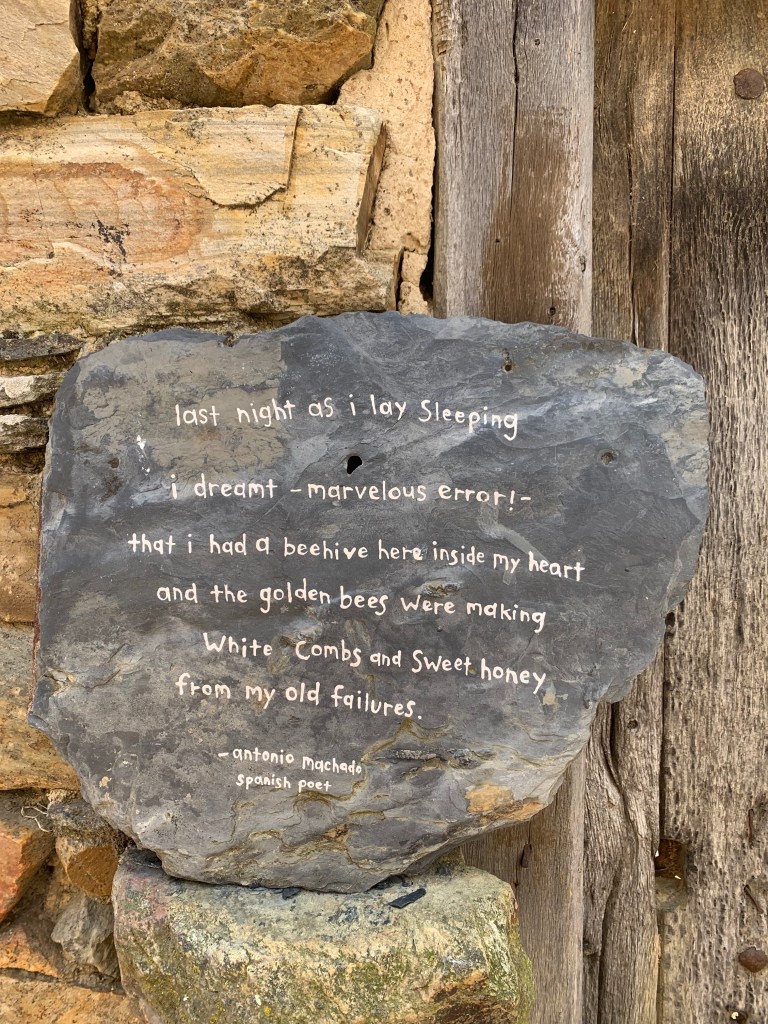 last night as i lay Sleeping
i dreamt -marvelous error!-
that i had a beehive here inside my heart
and the golden bees were making
White Combs and Sweet honey
from my old failures.
-antonio machado
spanish poet